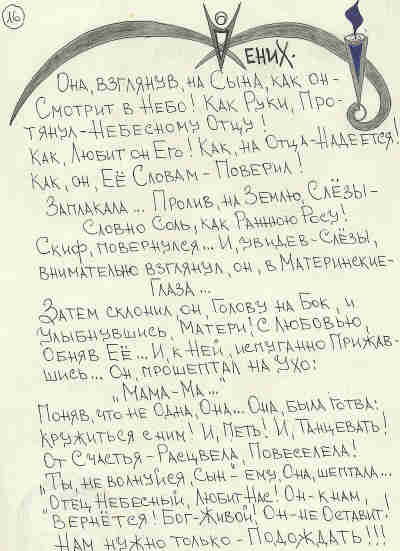 16
Жених.
Она, взглянув, на Сына, как он-
Смотрит в Небо! Как Руки, Про-
тянул-Небесному Отцу!
Как, Любит он Его! Как, на Отца-Надеется!
Как, он, Её Словам-Поверил!
Заплакала... Пролив, на Землю, Слёзы-
Словно Соль, как Раннюю Росу!
Скиф, повернулся... И, увидев-Слёзы,
внимательно взглянул, он, в Материнские-
Глаза...
Затем склонил, он, Голову на Бок, и
улыбнувшись, Матери! С Любовью,
Обняв Её... И, к Ней, испуганно Прижав-
шись... Он, прошептал на Ухо:
"Мама-Ма..."
Поняв, что не Одна, Она... Она, была Готва:
кружиться с ним! И, Петь! И, Танцевать!
От Счастья-Расцвела, Повеселела!
"Ты, не волнуйся, Сын"-ему, Она, шептала...
"Отец, Небесный, Любит Нас! Он-к нам,
"Вернётся! Бог-Живой! Он-не Оставит!
Нам нужно только-Подождать!!!